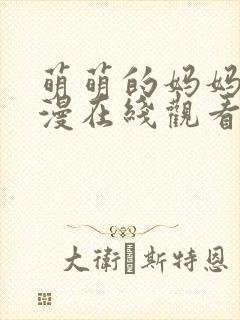 萌萌的妈妈
漫在綫觀看
大衛·斯特恩